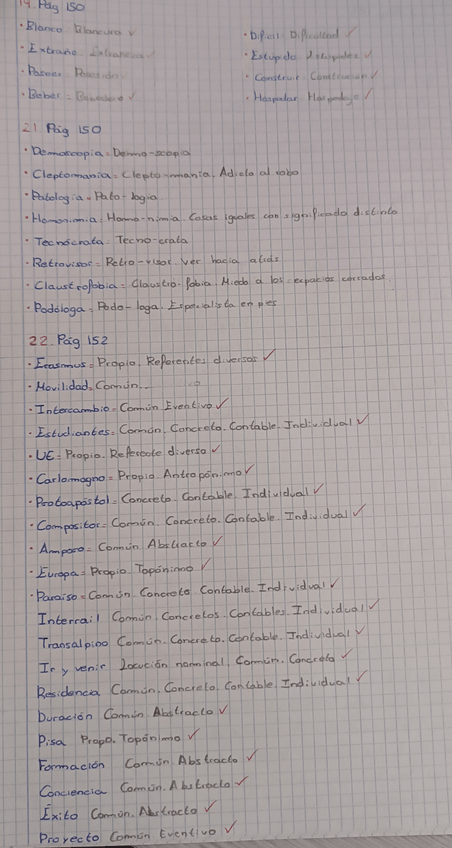 19. Pág 150
· Blanco Blancura
· Extraño
· Pasear
· Beber =
· Dificil: Dificultad
· Estupido
· Construir Construcion
· Hospedar Hospedaje
21. Pág 150
· Demoscopia = Demo-scopia
· Cleptomanía = Clepto-manía. Adicto al robo
· Patología = Pato-logía
· Homonimia = Homo-nimia. Cosas iguales con significado distinto
· Tecnócrata = Tecno-crata
· Retrovisor = Retro-visor ver hacia atrás
· Claustrofobia = Claustro-fobia. Miedo a los espacios cerrados
· Podóloga = Podo-loga. Especialista en pies
22. Pág 152
· Erasmus = Propio. Referentes diversos
· Movilidad = Común
· Intercambio = Común Eventivo
· Estudiantes = Común. Concreto. Contable. Individual
· UE = Propio. Referente diverso
· Carlomagno = Propio Antropónimo
· Protoapóstol = Concreto. Contable. Individual
· Compositor = Común. Concreto. Contable. Individual
· Amparo = Común Abstracto
· Europa = Propio Topónimo
· Paraíso = Común. Concreto Contable. Individual
Interrail Común. Concretos. Contables. Individual
Transalpino Común. Concreto. Contable. Individual
Ir y venir Locución nominal. Común. Concreto
Residencia Común. Concreto. Contable. Individual
Duración Común Abstracto
Pisa Propo. Topónimo
Formación Común. Abstracto
Conciencia Común. Abstracto
Éxito Común. Abstracto
Proyecto Común Eventivo